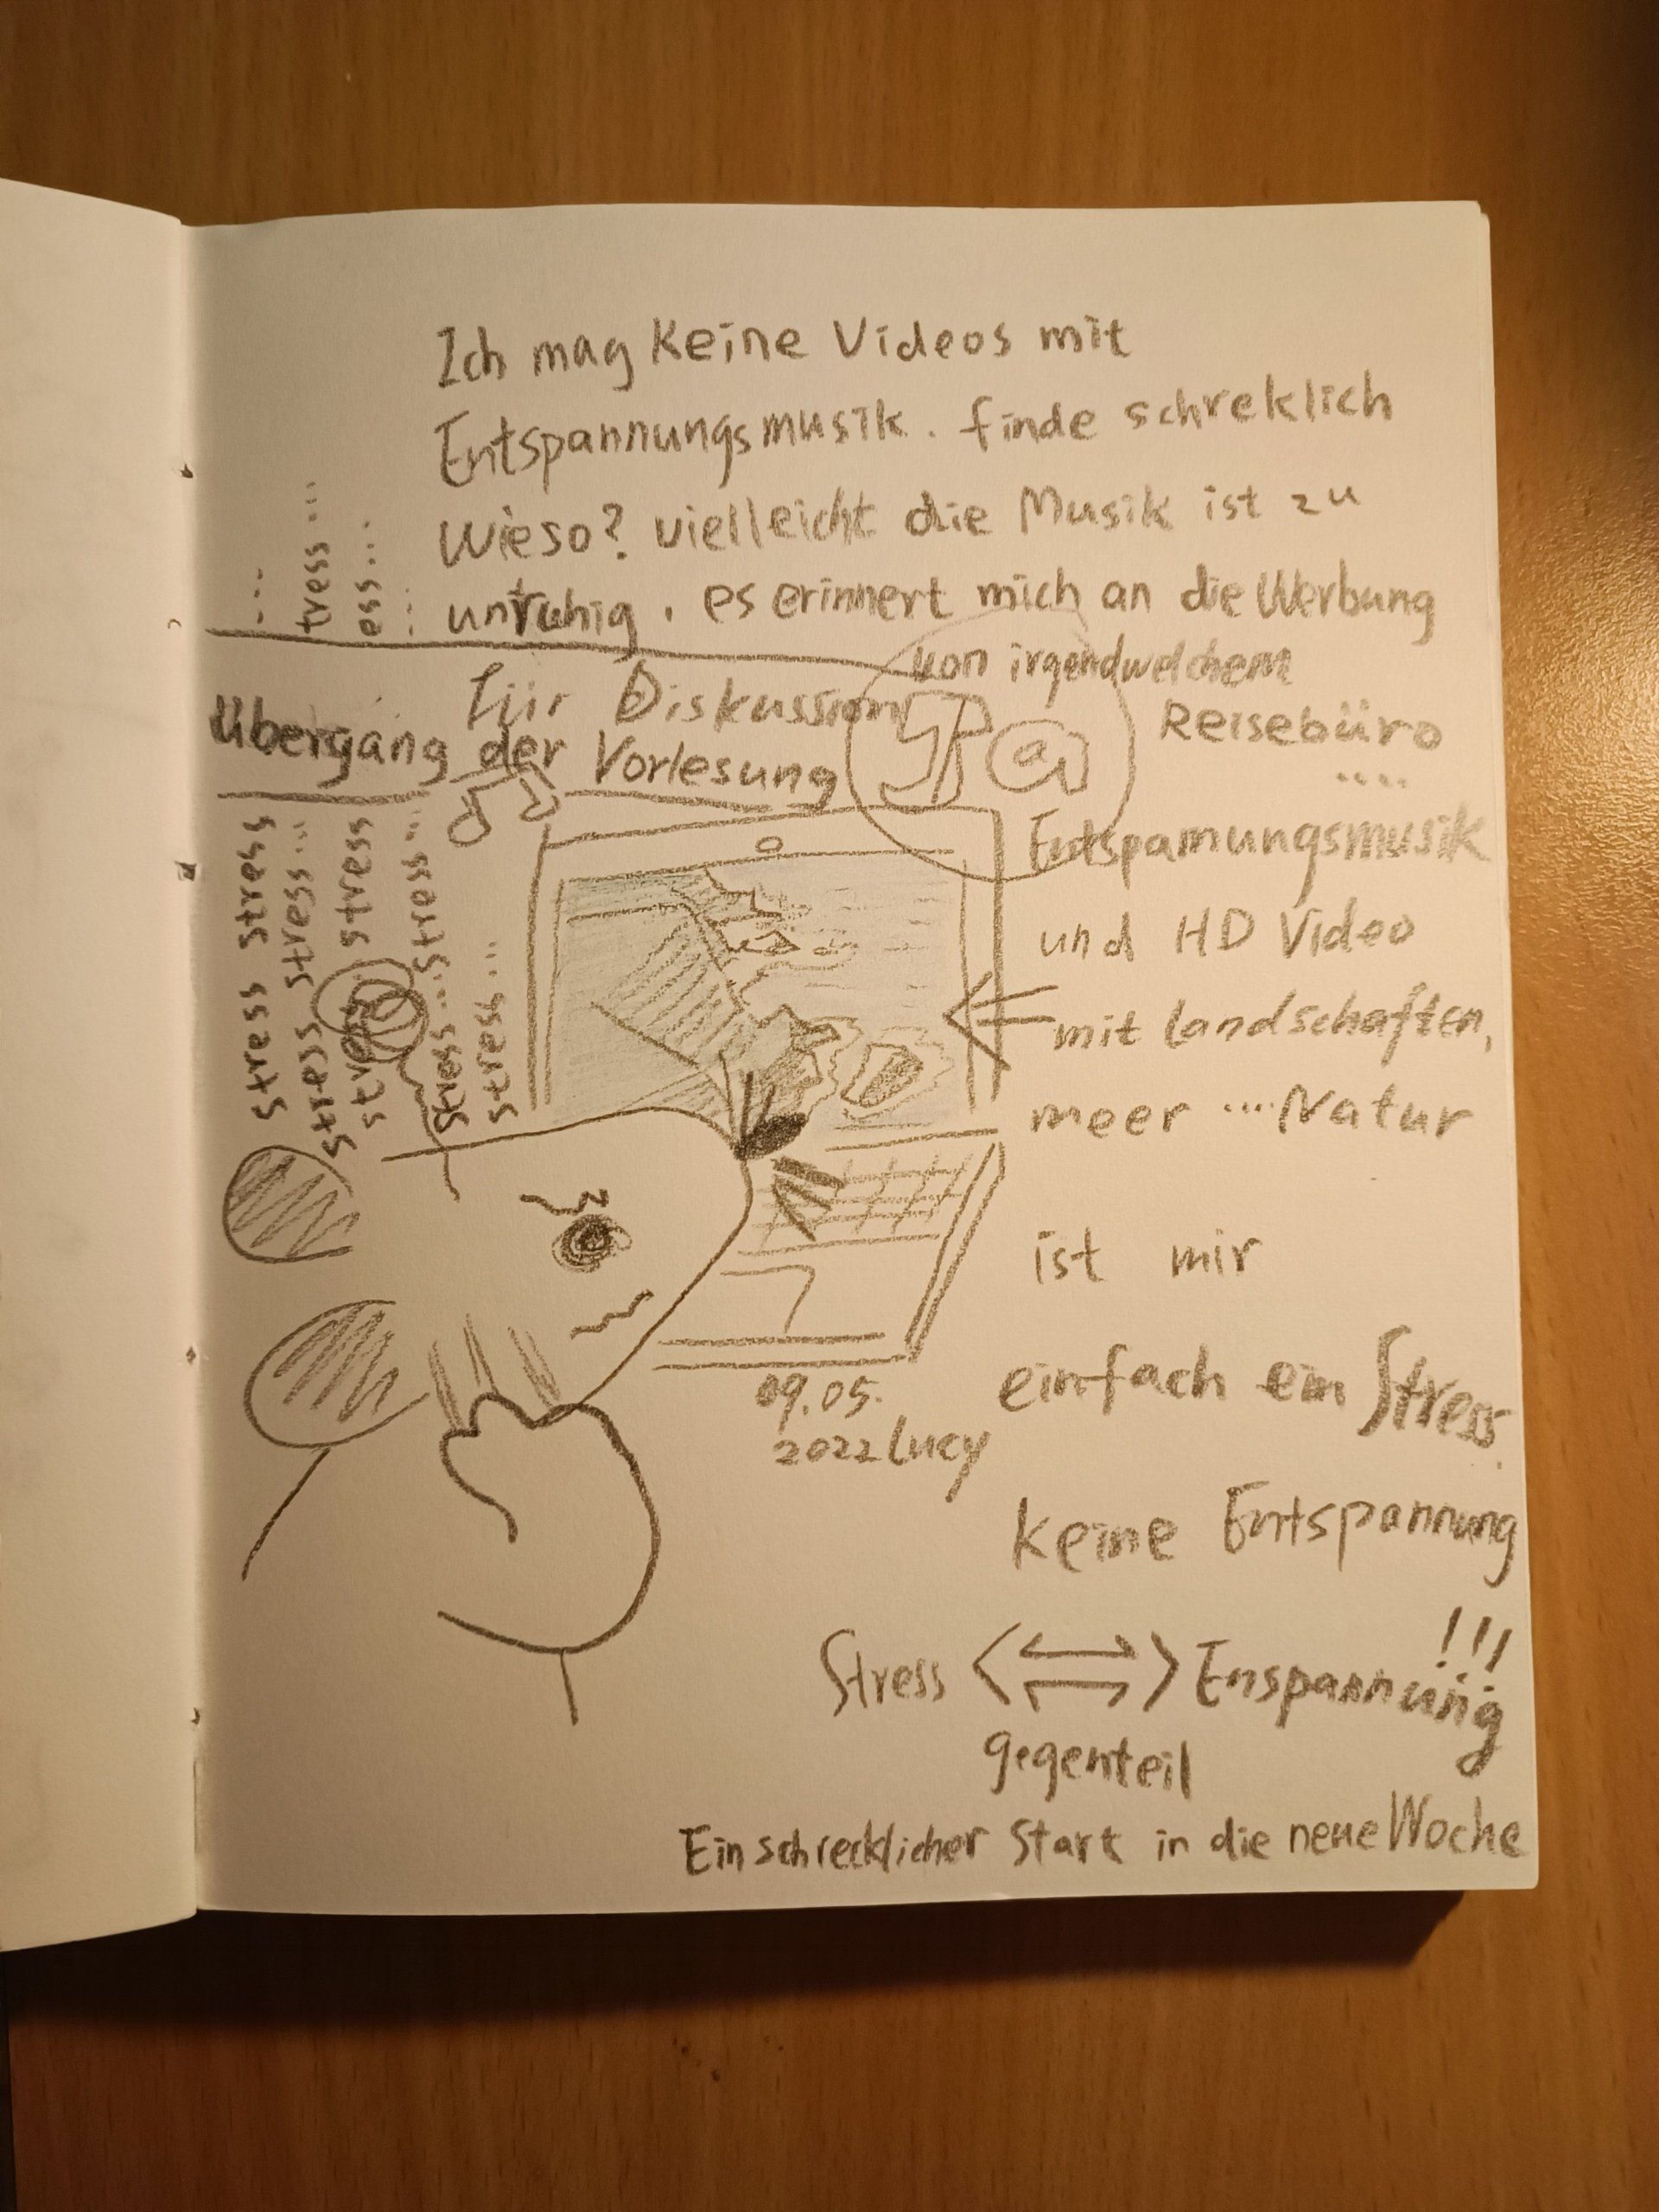 Ich mag Keine Videos mit
Entspannungsmusik. finde schreklich
Wieso? vielleicht die Musik ist zu
unruhig. es erinnert mich an die Werbung
von irgendwelchem
Reisebüro
....
für Diskussion
Übergang der Vorlesung
Ja
Entspannungsmusik
und HD Video
mit landschaften,
meer ... Natur
ist mir
einfach ein Stress.
keine Entspannung
!!!
Stress <⇌> Enspannung
gegenteil
Ein schrecklicher Start in die neue Woche
09.05.
2022 Lucy
...
tress...
ess...
...
stress stress
stress stress...
stress stress
stress...stress...
stress...